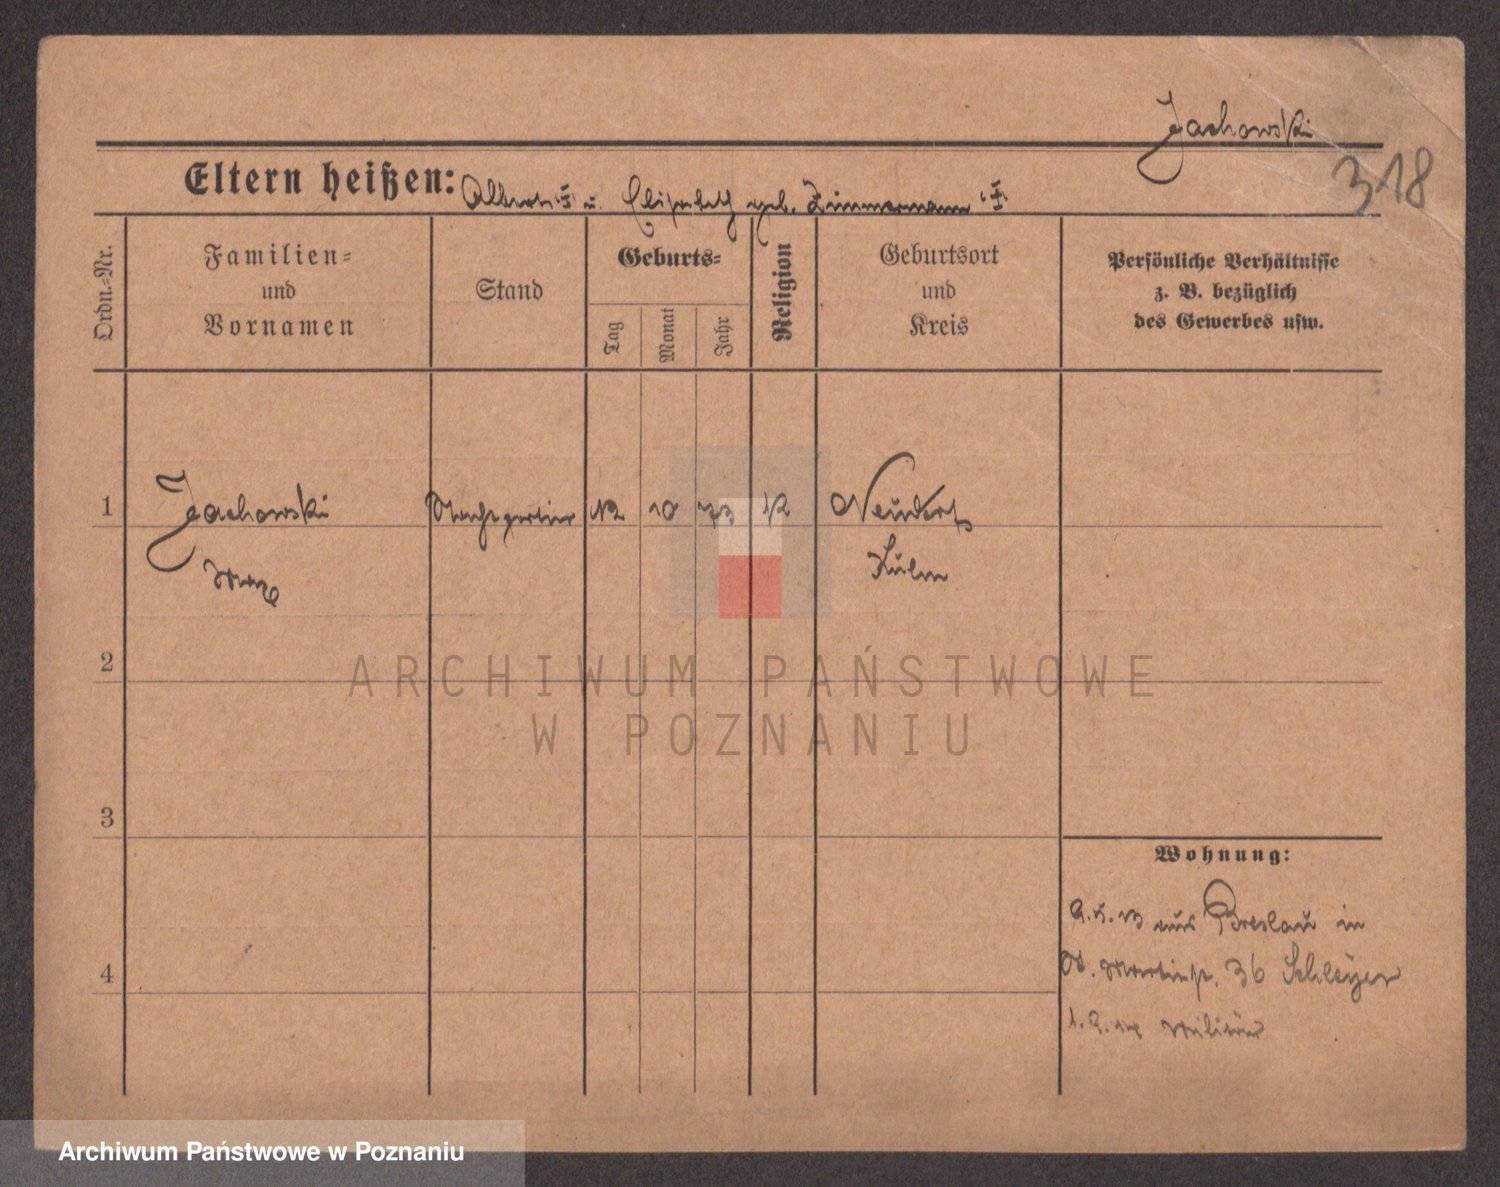 Jachowski
318
Eltern heißen: Albert u. Elisabeth geb. Zimmermann
Ordn.-Nr.
Familien-
und
Vornamen
Stand
Geburts-
Tag
Monat
Jahr
Religion
Geburtsort
und
Kreis
Persönliche Verhältnisse
z. B. bezüglich
des Gewerbes usw.
1 Jachowski 12 10 73 K Neudorf
Max Kulm
2
ARCHIWUM PAŃSTWOWE
W POZNANIU
3
Wohnung:
aus Breslau in
St. Martinstr. 36 Schleyer
4
Militär
Archiwum Państwowe w Poznaniu